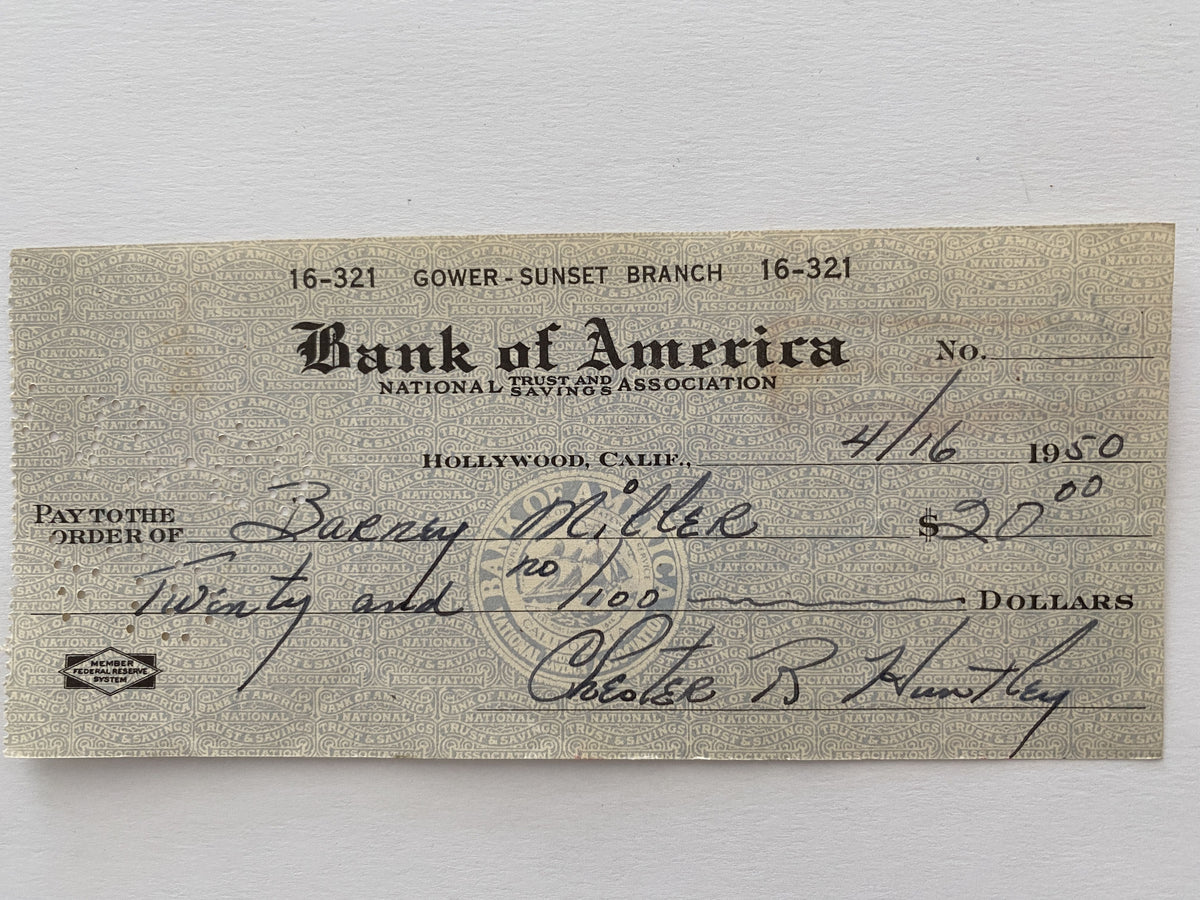 16-321 GOWER-SUNSET BRANCH 16-321
Bank of America
NATIONAL TRUST AND SAVINGS ASSOCIATION
No.
HOLLYWOOD, CALIF., 4/16 1950
PAY TO THE ORDER OF Barney Miller $20 00
Twenty and no/100 DOLLARS
MEMBER
FEDERAL RESERVE
SYSTEM
Chester R Huntley